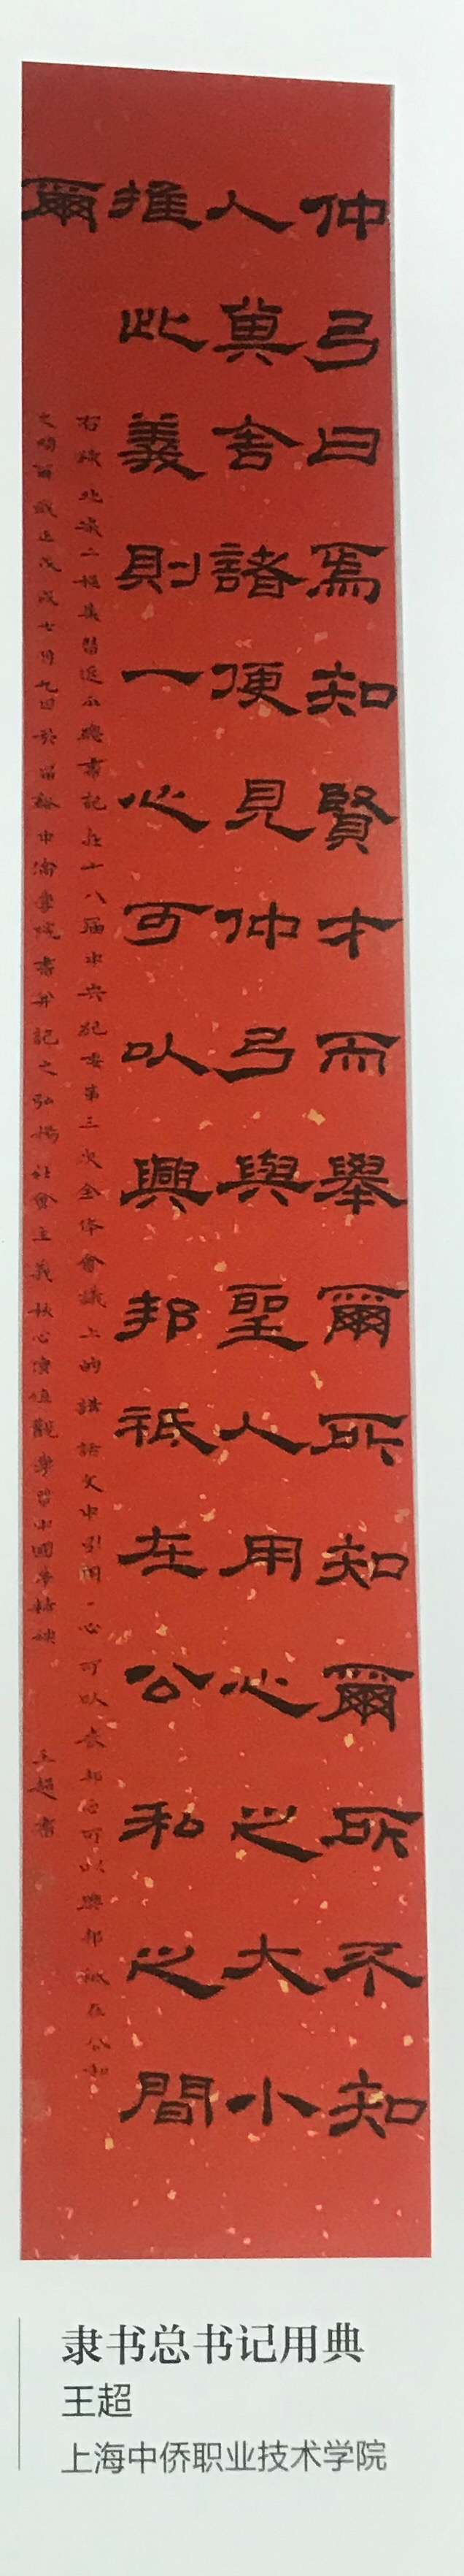 仲弓曰焉知賢才而舉爾所知爾所不知
人其舍諸便見仲弓與聖人用心之大小
推此義則一心可以興邦祇在公私之間
爾
右錄北宋二程集習近平總書記在十八屆中央紀委第三次全体會議上的講話文中引用一心可以喪邦一心可以興邦祇在公私
之間爾歲在戊戌七月九日於中僑學院書并記之弘揚社會主義核心價值觀學習中國夢
王超書
隶书总书记用典
王超
上海中侨职业技术学院